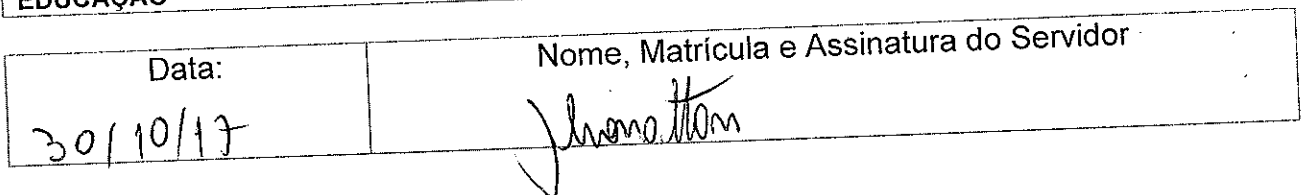 EDUCAÇÃO
Data:
Nome, Matrícula e Assinatura do Servidor
30/10/17
Jhonatton